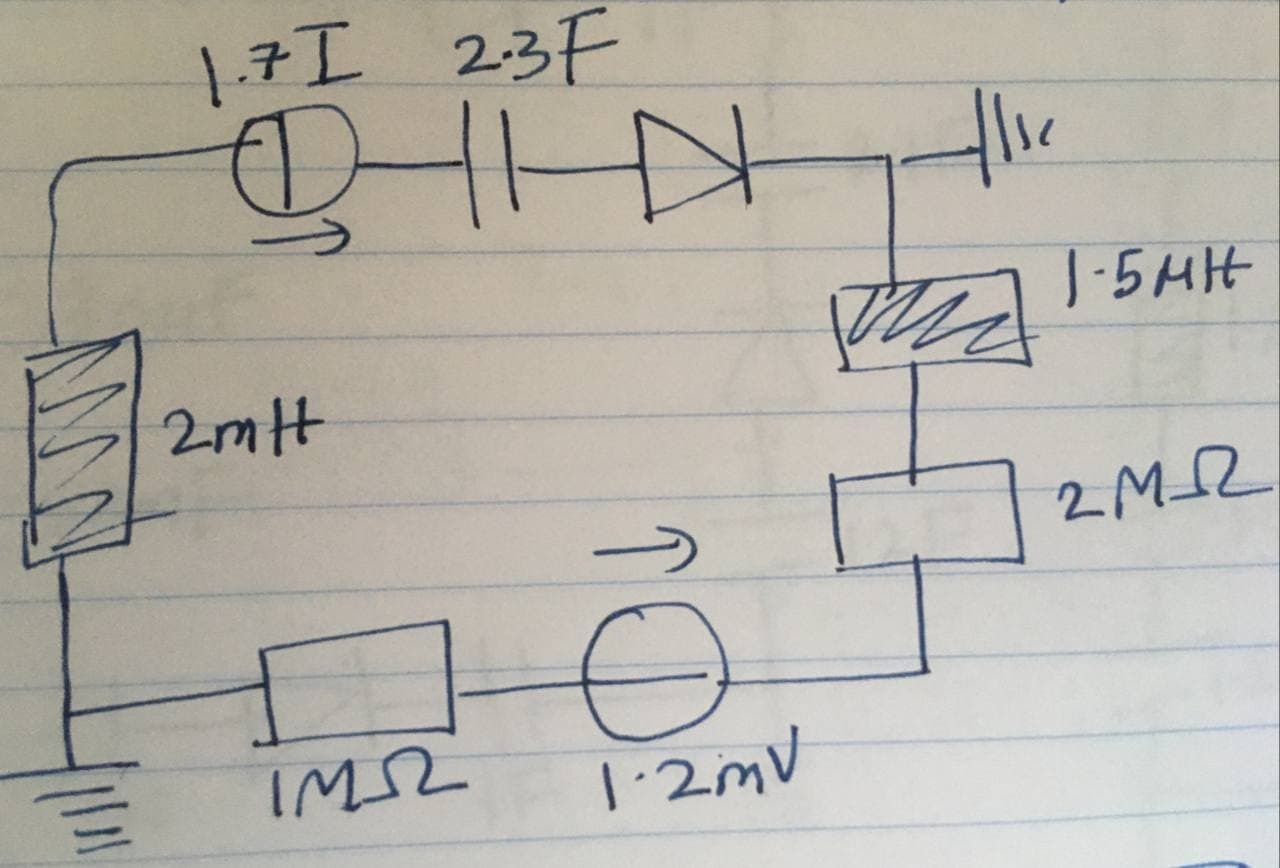 1.7I 2.3F
1.5μH
2mH
2MΩ
1MΩ 1.2mV